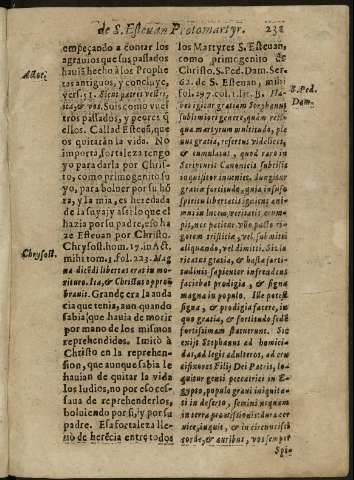 de S. Esteuan Protomartyr. 232
empeçando a contar los
agrauios que sus passados
hauia hecho a los Prophe
tas antiguos, y concluye,
vers. 51. Sicut patres vestri,
ita, & vos. Sois como vues
tros passados, y peores q̃
ellos. Callad Esteuã, que
os quitarán la vida. No
importa, fortaleza tengo
yo para darla por Chris-
to, como primogenito su
yo, para boluer por su hõ
ra, y la mia, es heredada
de la suya, y assi lo que el
hazia por su padre, esso ha
ze Esteuan por Christo.
Chrysost. hom. 17. in Act.
mihi tom. 3. fol. 223. Mag
na dicẽdi libertas erat in mo-
rituro. Ita, & Christus opprom
brauit. Grande era la auda
cia que tenia, aun quando
sabia que hauia de morir
por mano de los mismos
reprehendidos. Imitò à
Christo en la reprehen-
sion, que aunque sabia le
hauian de quitar la vida
los Iudios, no por esso ces-
saua de reprehenderlos,
boluiendo por si, y por su
padre. Esa fortaleza lle-
uò de herẽcia entre todos
Actor.
Chrysost.
los Martyres S. Esteuan,
como primogenito de
Christo. S. Ped. Dam. Ser.
62. de S. Esteuan, mihi
fol. 297. col. 1. lit. B. Ha-
bet igitur gratiam Stephanus
sublimiori genere, quàm reli-
qua martyrum multitudo, ple
nus gratia, refertus videlicet,
& cumulatus, quod rarò in
Scripturis Canonicis subtilis
inquisitor inueniet. Iungitur
gratiæ fortitudo, quia infuso
spiritu libertatis ingenuus ani-
mus in lucem veritatis erum-
pit, nec patitur vim passio ri-
gorem iustitiæ, vel submitti
aliquando, vel dimitti. Sic lu
cutus gratia, & hasta forti-
tudinis sapienter infrendens
faciebat prodigia, & signa
magna in populo. Ille potest
signa, & prodigia facere, in
quo gratia, & fortitudo sedẽ
fortissimam statuerunt. Sic
exijt Stephanus ad homici-
das, ad legis adulteros, ad cru
cifixores Filij Dei Patris, lo-
quitur genti peccatrici in E-
gypto, populo graui iniquita-
ti in deserto, semini nequam
in terra promissionis: dura cer
uice, inquit, & in circuncisis
corde, & auribus, vos semper
S. Ped.
Dam.
Spi-